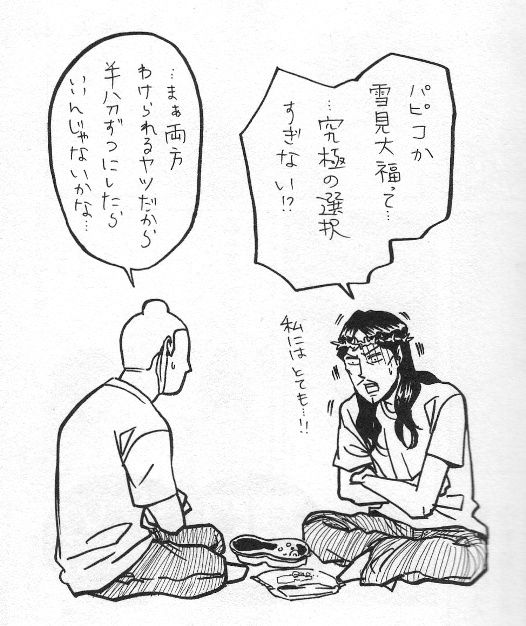 パピコか
雪見大福って…
…究極の選択
すぎない!?
私には とても…!!
…まぁ両方
わけられるヤツだから
半分ずつにしたら
いいんじゃないかな…